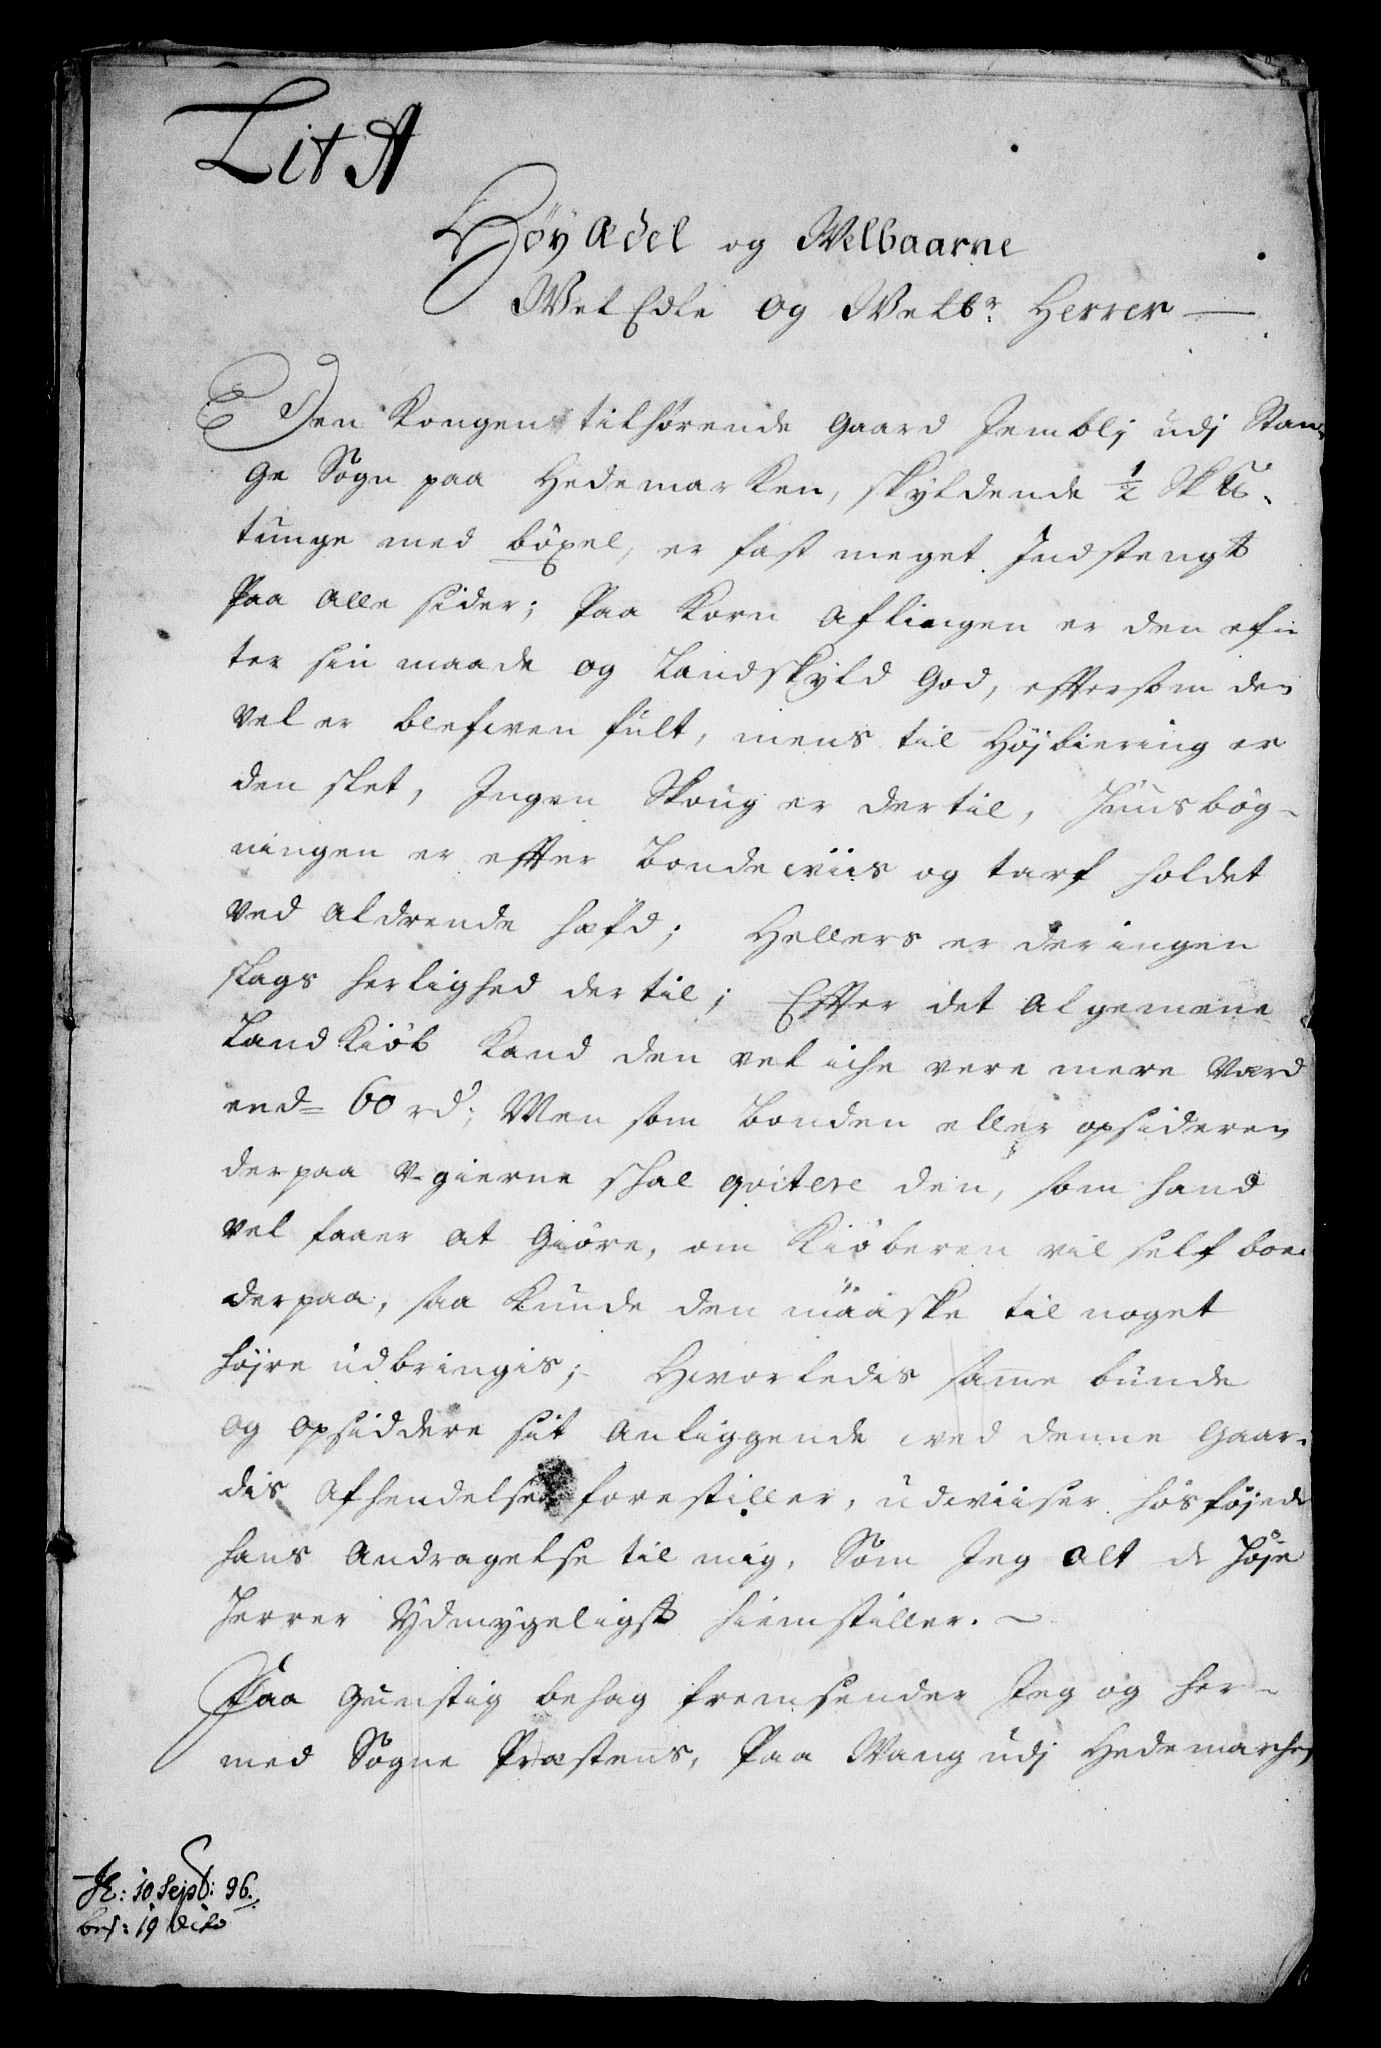 Lit A
Höy Ædel og Welbaarne
Wel Edle og Welbr. Herrer —
Den Kongen tilhörende Gaard Jemblj udj Stan-
ge Sogn paa Hedemarken, skyldende ½ Sk℔.
tunge med böxel, er fast meget Indstengt
Paa Alle sider; Paa Korn Aflingen er den ef-
ter sin maade og Landskyld God, eftersom den
vel er blefwen fult, mens til Höjbiering er
den slet, Ingen Skoug er dertil, Huusbög-
ningen er effter Bondewiis og tarf holdet
ved Aldrende hæfd; Hellers er der ingen
slags herlighed dertil; Effter det Algemene
Landkiöb Kand den vel iche vere mere Værd
end= 60 rd; Men som Bonden eller opsideren
derpaa v-gierne skal qvitere den, som hand
vel faaer at Giöre, om Kiöberen vil self boe
derpaa, saa kunde den måaske til noget
höjre udbringis; Hvorledis samme bunde
og opsiddere sit Anliggende wed denne Gaar-
dis Afhendelse forestiller, udwiiser hosföjede
hans Andragelse til mig, Som Jeg Alt de Höje
Herrer Ydmygeligst hiemstiller. —
Paa Gunstig behag fremsender Jeg og her-
med Sogne Præstens, Paa Wang udj Hedemarchen
10 Sept: 96.
19 dito